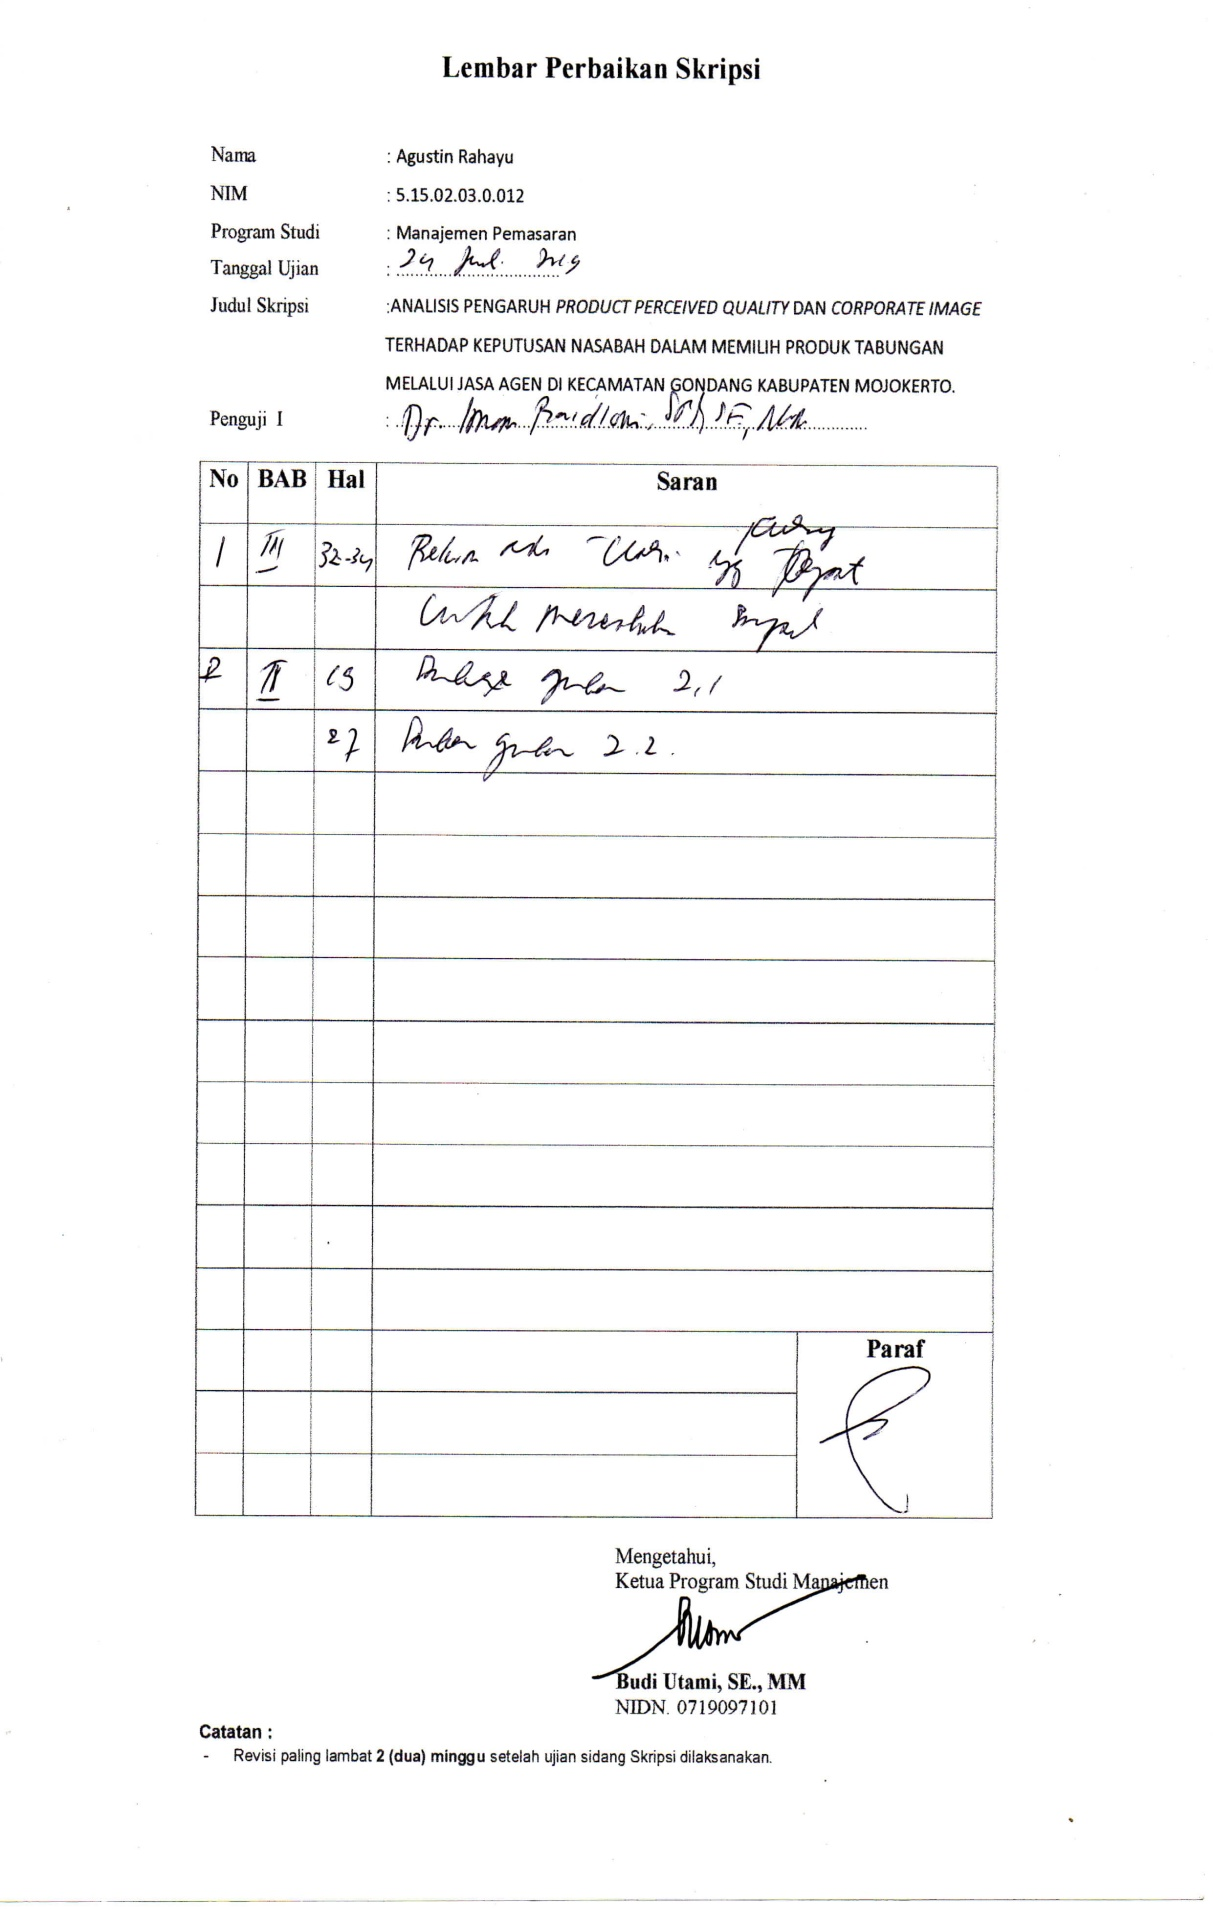 Lembar Perbaikan Skripsi
Nama : Agustin Rahayu
NIM : 5.15.02.03.0.012
Program Studi : Manajemen Pemasaran
Tanggal Ujian : 24 2019
Judul Skripsi :ANALISIS PENGARUH PRODUCT PERCEIVED QUALITY DAN CORPORATE IMAGE
TERHADAP KEPUTUSAN NASABAH DALAM MEMILIH PRODUK TABUNGAN
MELALUI JASA AGEN DI KECAMATAN GONDANG KABUPATEN MOJOKERTO.
Penguji I : Dr. Imam SE,
No BAB Hal Saran
1 III 32-34 Belum ada yg
untuk
2 II 19 gambar 2.1
27 gambar 2.2.
Paraf
Mengetahui,
Ketua Program Studi Manajemen
Budi Utami, SE., MM
NIDN. 0719097101
Catatan :
- Revisi paling lambat 2 (dua) minggu setelah ujian sidang Skripsi dilaksanakan.